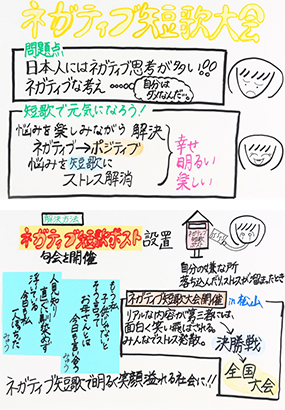 ネガティブ短歌大会
問題点
日本人にはネガティブ思考が多い!!
ネガティブな考え……
自分は
ダメなんだ…。
短歌で元気になろう!
悩みを楽しみながら解決
ネガティブ→ポジティブ
悩みを短歌に
ストレス解消
幸せ
明るい
楽しい
解決方法
ネガティブ短歌ポスト設置
句会を開催
ネガティブ
短歌
自分の嫌な所
落ち込んだりストレスが溜まったとき
ネガティブ短歌大会開催 in 松山
リアルな内容が第三者には、
面白く笑い飛ばされる。
みんなでストレス発散。
決勝戦
全国
大会
ネガティブ短歌で明るく笑顔溢れる社会に!!